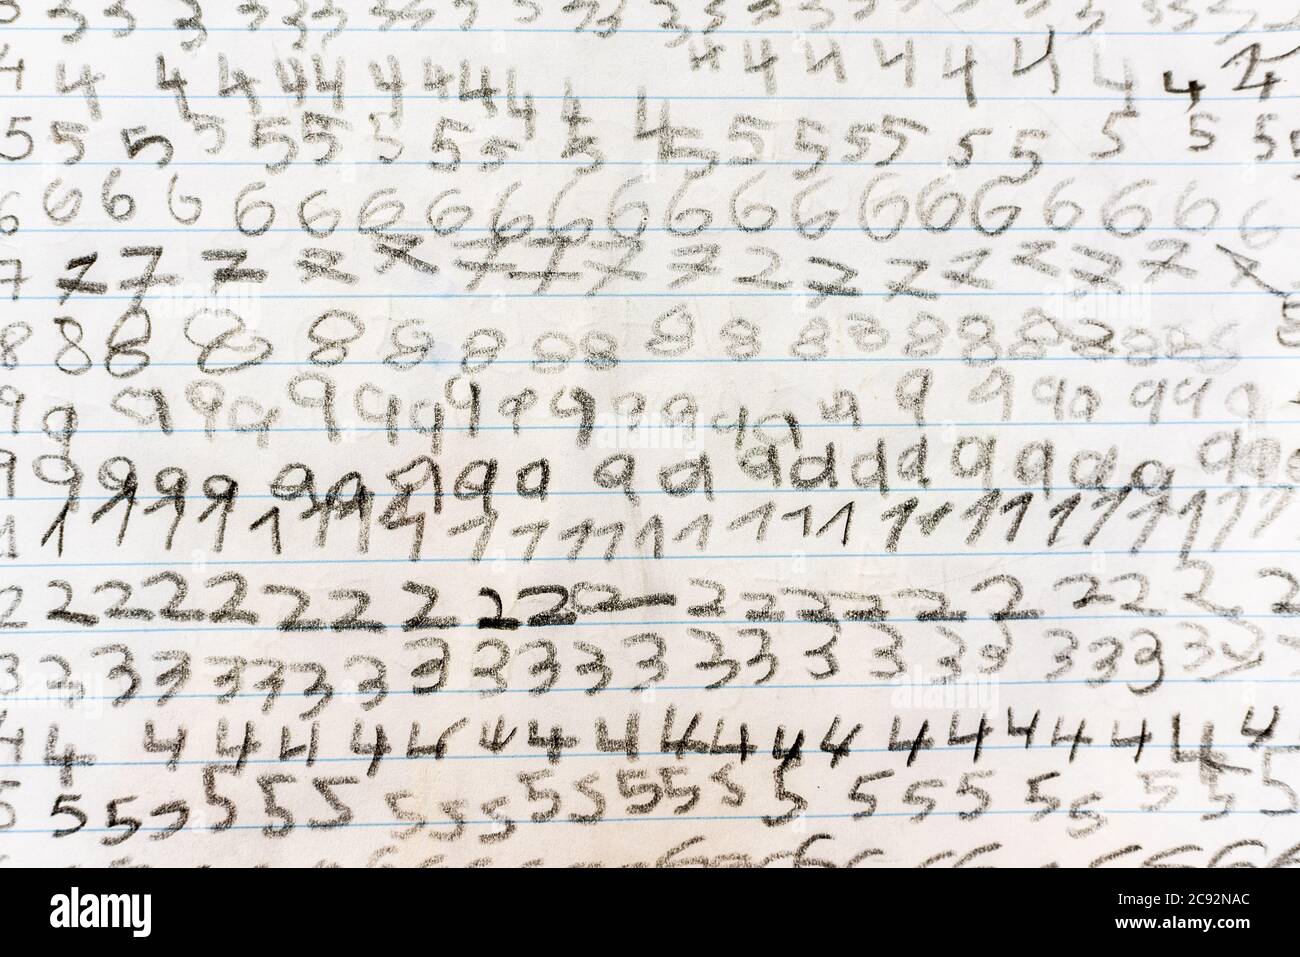 3 3 3 3 3 3 3 3 3 3 3 3 3 3
4 4 4 4 4 4 4 4 4 4 4 4 4 4 4 4 4 4 4 4 4 4
5 5 5 5 5 5 5 5 5 5 5 5 5 5 5 5 5 5 5 5 5 5
6 6 6 6 6 6 6 6 6 6 6 6 6 6 6 6 6 6 6 6 6 6
7 7 7 7 7 7 7 7 7 7 7 7 7 7 7 7 7 7 7
8 8 8 8 8 8 8 8 8 8 8 8 8 8 8 8 8 8 8 8 8
9 9 9 9 9 9 9 9 9 9 9 9 9 9 9 9 9 9 9 9 9 9 9
9 9 9 9 9 9 9 9 9 9 9 9 9 9 9 9 9 9 9 9 9 9 9
1 1 1 1 1 1 1 1 1 1 1 1 1 1 1 1 1 1 1 1 1 1 1
2 2 2 2 2 2 2 2 2 2 2 2 2 2 2 2 2 2 2 2 2
3 3 3 3 3 3 3 3 3 3 3 3 3 3 3 3 3 3 3 3 3 3 3
4 4 4 4 4 4 4 4 4 4 4 4 4 4 4 4 4 4 4 4
5 5 5 5 5 5 5 5 5 5 5 5 5 5 5 5 5 5 5 5 5 5 5
6 6 6 6 6 6 6 6 6 6
alamy
Image ID: 2C92NAC
www.alamy.com